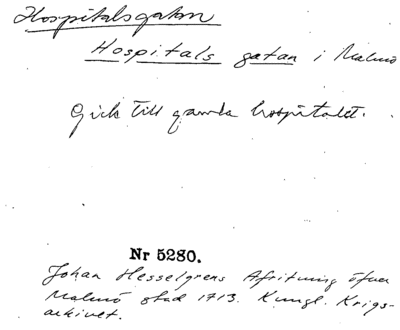 Hospitalsgatan
Hospitals gatan i Malmö
Gick till gamla hospitalet.
Nr 5280.
Johan Hesselgrens Afritning öfver
Malmö stad 1713. Kungl. Krigs-
arkivet.